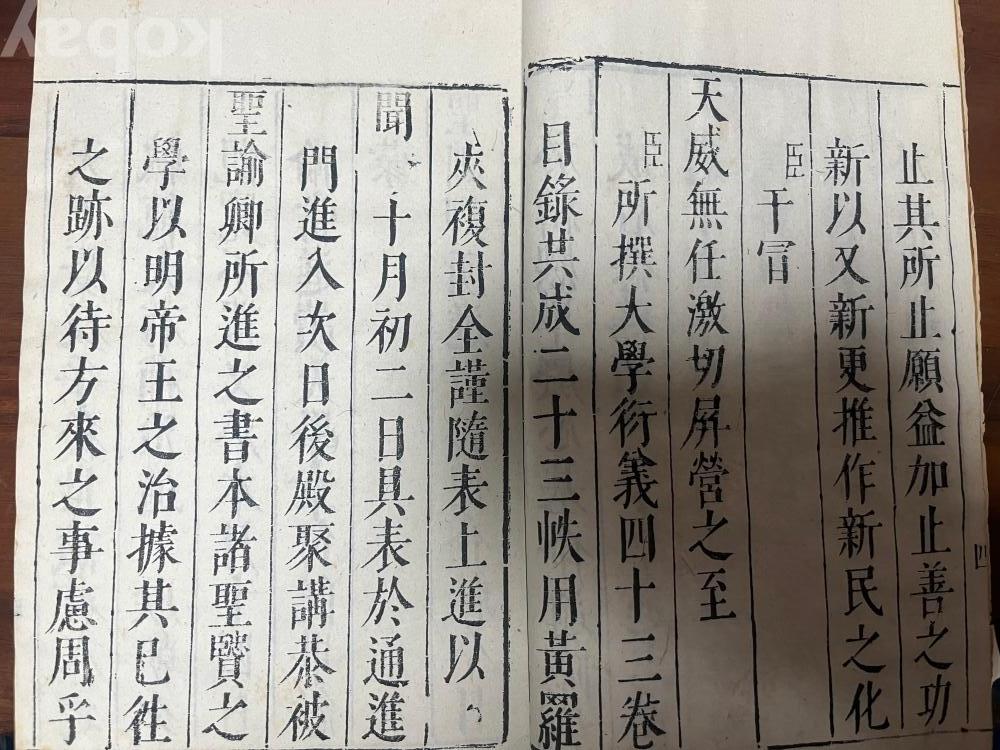 止其所止願益加止善之功
新以又新更推作新民之化
臣干冒
天威無任激切屏營之至
臣所撰大學衍義四十三卷
目錄共成二十三帙用黃羅
夾複封全謹隨表上進以
聞十月初二日具表於通進
門進入次日後殿聚講恭被
聖諭卿所進之書本諸聖賢之
學以明帝王之治據其已徃
之跡以待方來之事慮周乎
四
kobay